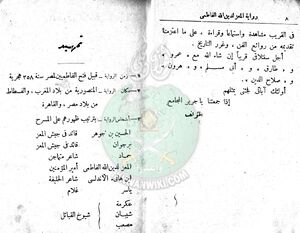 ٨ رواية المعز لدين الله الفاطمي
في القريب مشاهدة واستماعا وقراءة ، على ما اعتزمنا
تقديمه من روائع الفن ، وغرر التاريخ .
أجل ستلاقي قريباً إن شاء الله مع « عمرو »
و « طارق » و « أبى مسلم » و « هرون »
و « صلاح الدين »
أولئك آبائى فجئنى بمثلهم
إذا جمعتنا يا جرير المجامع
تمهيد
١ - زمن الرواية : قبيل فتح الفاطميين لمصر سنة ٣٥٨ هجرية
٢ - مكان الرواية : المنصورية من بلاد المغرب ، والفسطاط
من بلاد مصر ، والقاهرة
٣ - أشخاص الرواية : بترتيب ظهورهم على المسرح
الحسين بن جوهر قائد في جيش المعز
برجوان قائد في جيش المعز
حماد شاعر متهاجن
المعز لدين الله الفاطمى أمير المؤمنين
ابن هانىء الأندلسى شاعر الخليفة
ياسر غلام
عكرمة
شيبان شيوخ القبائل
مصعب